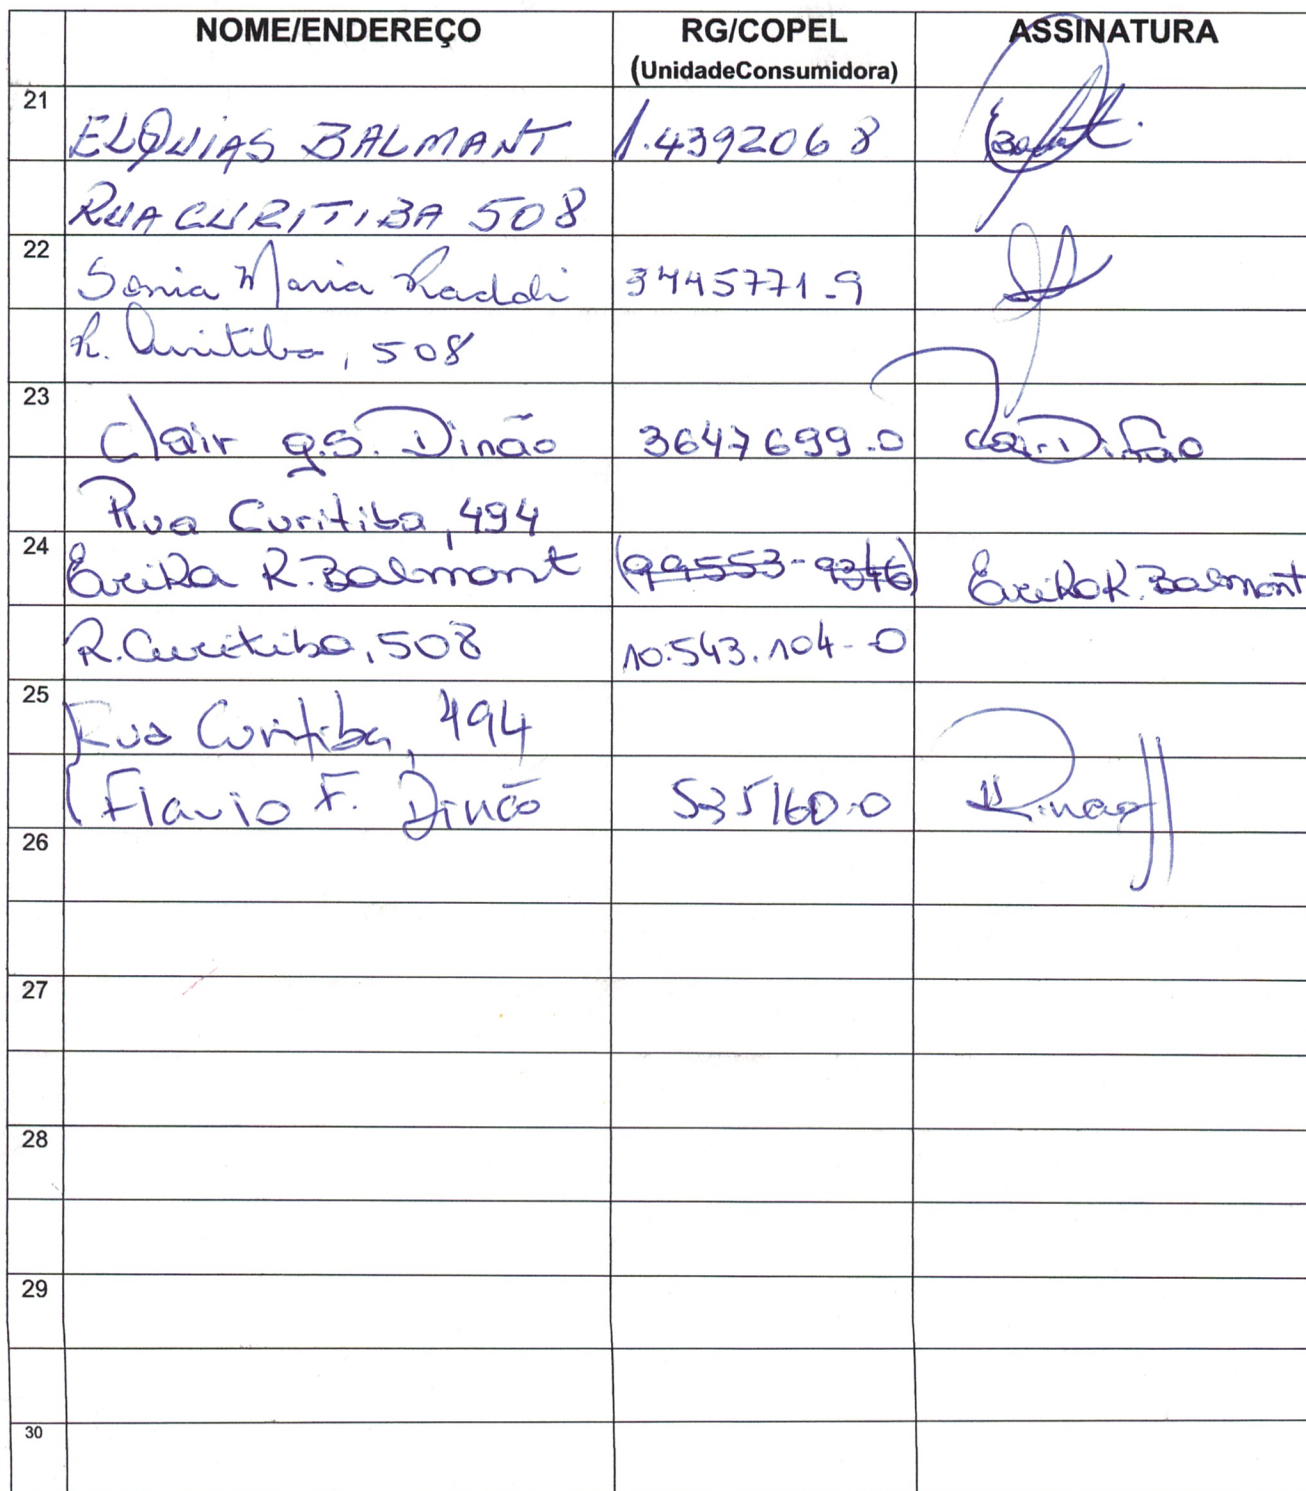 NOME/ENDEREÇO RG/COPEL ASSINATURA
(UnidadeConsumidora)
21
ELQUIAS BALMANT 1.4392068
RUA CURITIBA 508
22
Sonia Maria Raddi 3445771-9
R. Curitiba, 508
23
Clair g.S. Dinão 3647699-0 Clair Dinão
Rua Curitiba, 494
24
Erika R. Balmant (99553-9346) Erika R. Balmant
R. Curitiba, 508 10.543.104-0
25
Rua Curitiba, 494
Flavio F. Dinão 535160-0
26
27
28
29
30